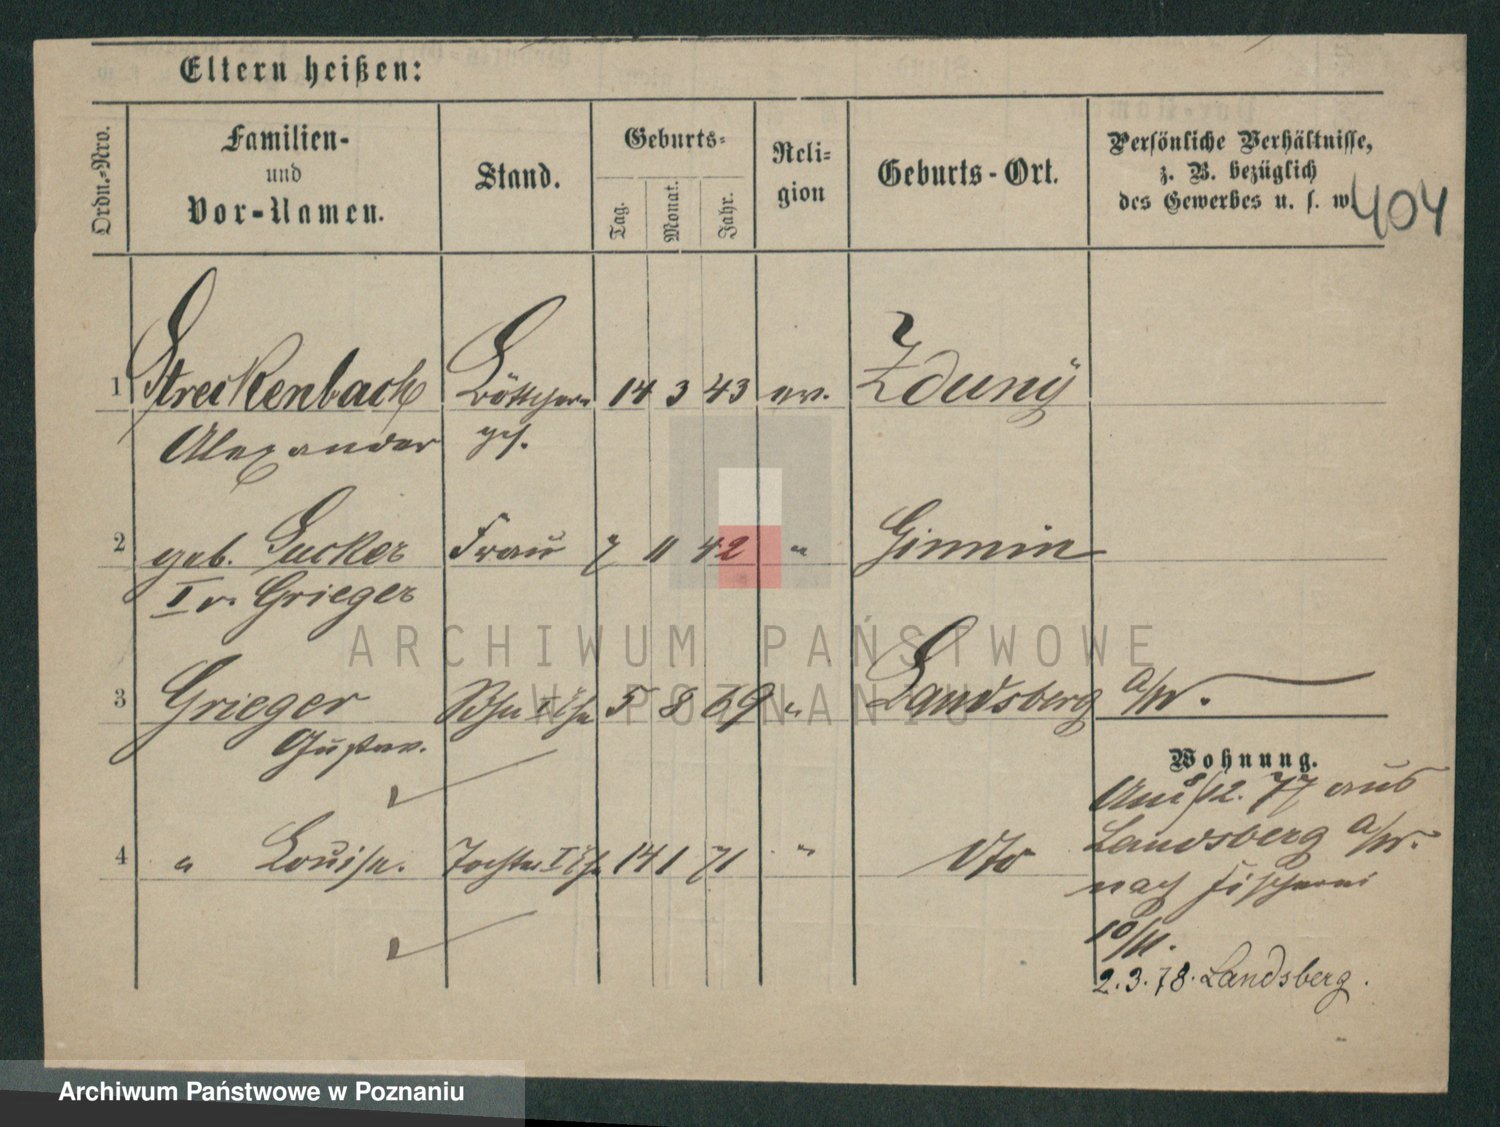 Eltern heißen:
Ordn.-Nro.
Familien-
und
Vor-Namen.
Stand.
Geburts-
Tag.
Monat.
Jahr.
Reli-
gion
Geburts-Ort.
Persönliche Verhältnisse,
z. B. bezüglich
des Gewerbes u. s. w.
404
1 Streckenbach Böttcher 14 3 43 ev. Zduny
Alexander ges.
2 geb. Frau 7 11 42 "
I v. Grieger
3 Grieger Sohn I Ehe 5 8 69 " Landsberg a/W.
Gustav.
4 " Louise. Tochter I Ehe 14 1 71 " dto
Wohnung.
12. 77 aus
Landsberg a/W.
nach Fischerei
10/11.
2.3.78. Landsberg.
ARCHIWUM PAŃSTWOWE
W POZNANIU
Archiwum Państwowe w Poznaniu